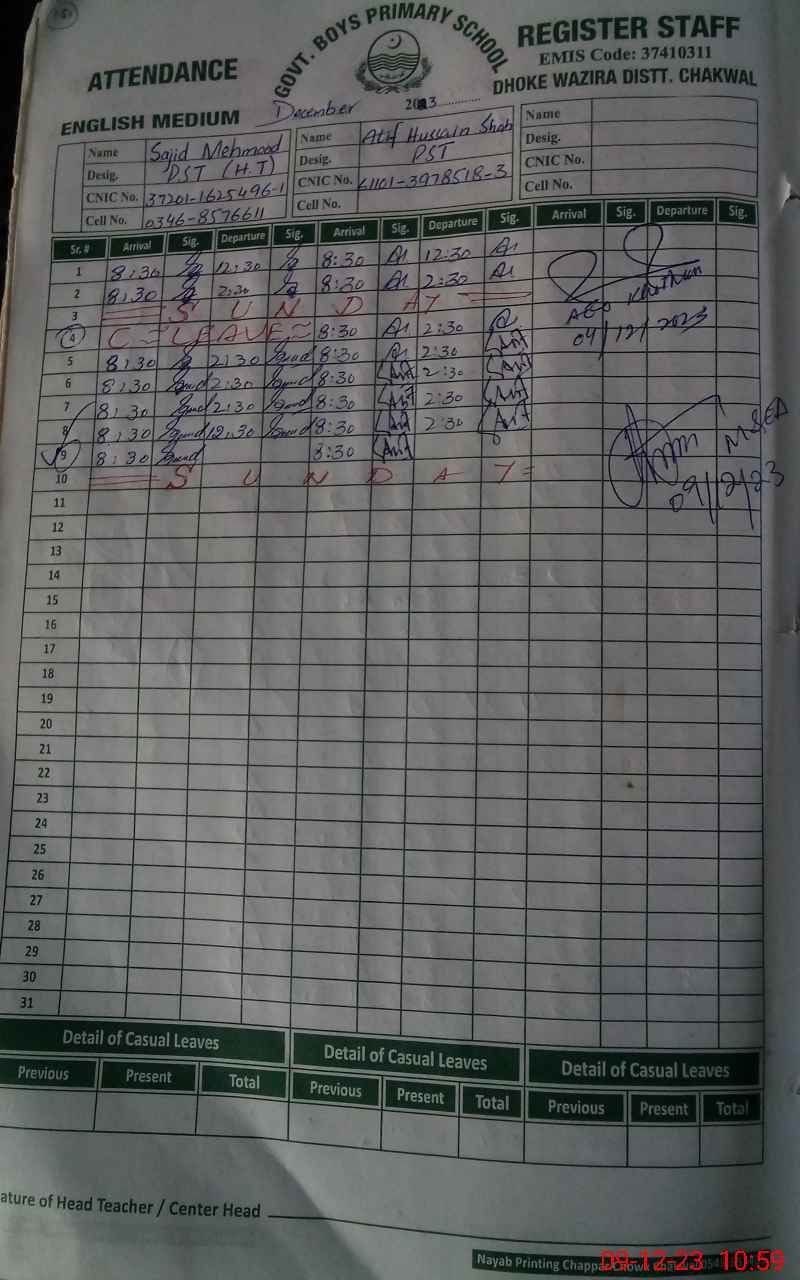 GOVT. BOYS PRIMARY SCHOOL
ATTENDANCE REGISTER STAFF
EMIS Code: 37410311
ENGLISH MEDIUM DHOKE WAZIRA DISTT. CHAKWAL
December 2023
Name Sajid Mehmood Name Atif Hussain Shah Name
Desig. PST (H.T) Desig. PST Desig.
CNIC No. 37201-1625496-1 CNIC No. 61101-3978518-3 CNIC No.
Cell No. 0346-8576611 Cell No. Cell No.
Sr. # Arrival Sig. Departure Sig. Arrival Sig. Departure Sig. Arrival Sig. Departure Sig.
1 8:30 12:30 8:30 12:30
2 8:30 2:30 8:30 2:30
3 S U N D A Y
4 C = LEAVE = 8:30 2:30
AEO
04/12/2023
5 8:30 2:30 8:30 2:30
6 8:30 2:30 8:30 2:30
7 8:30 2:30 8:30 2:30
8 8:30 12:30 8:30 2:30
9 8:30 8:30
MEA
09/12/23
10 S U N D A Y
11
12
13
14
15
16
17
18
19
20
21
22
23
24
25
26
27
28
29
30
31
Detail of Casual Leaves Detail of Casual Leaves Detail of Casual Leaves
Previous Present Total Previous Present Total Previous Present Total
ature of Head Teacher / Center Head
Nayab Printing Chappar Chowk
09-12-23 10:59